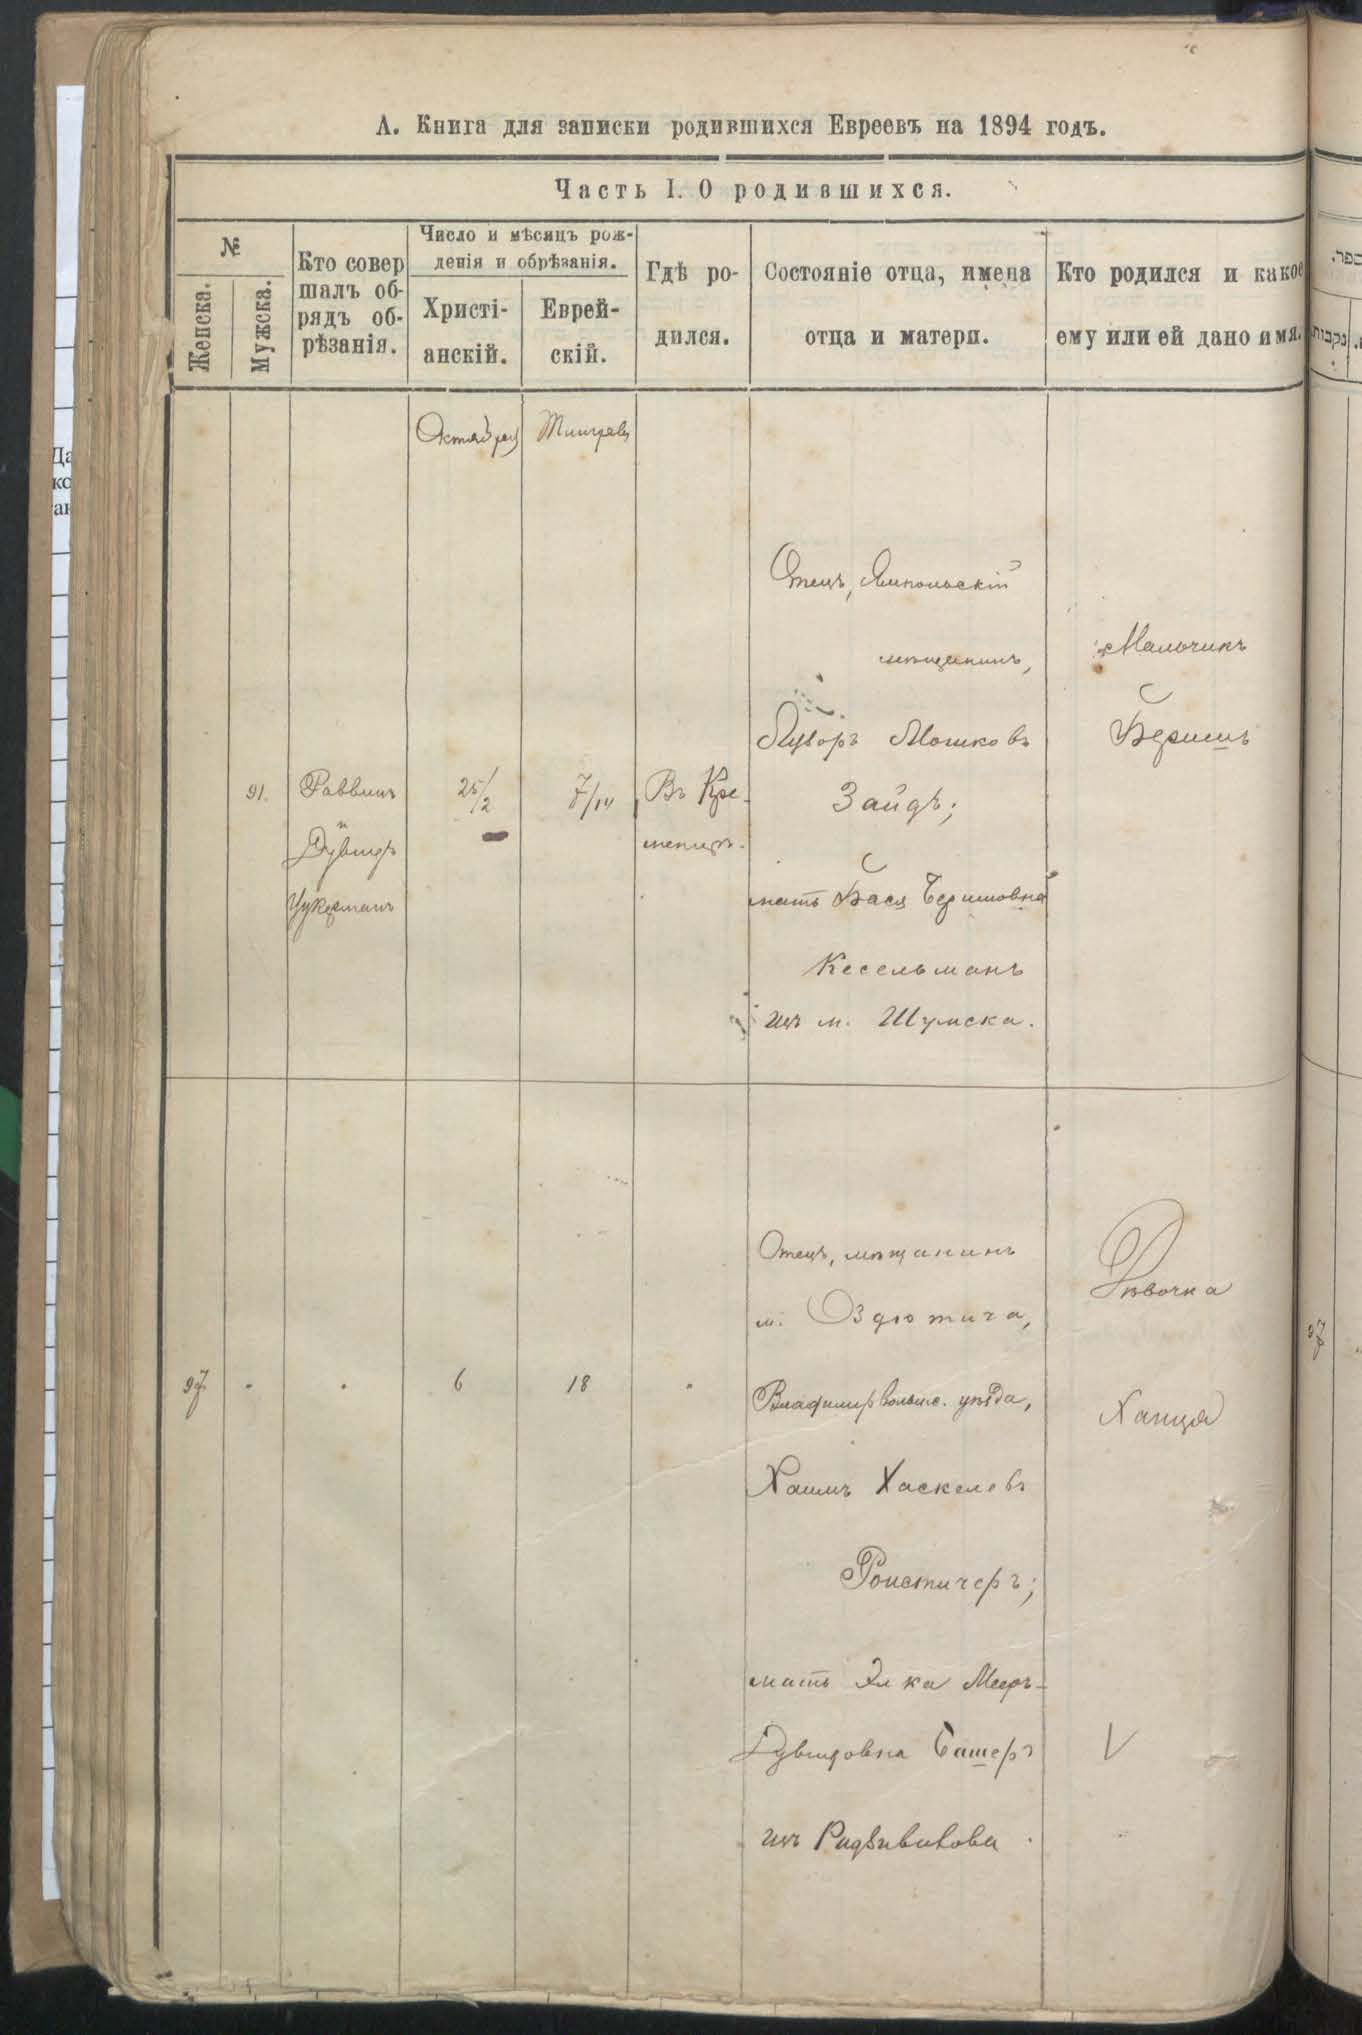 А. Книга для записки родившихся Евреевъ на 1894 годъ.
Часть I. О родившихся.
№
Женска.
Мужска.
Кто совер
шалъ об-
рядъ об-
рѣзанія.
Число и мѣсяцъ рож-
денія и обрѣзанія.
Христі-
анскій.
Еврей-
скій.
Гдѣ ро-
дился.
Состояніе отца, имена
отца и матери.
Кто родился и какое
ему или ей дано имя.
Октября
Тишрей
91.
Раввинъ
и
Дувидъ
Цукерманъ
25/2
7/14
Въ Кре-
менцѣ.
Отецъ, Ямпольскій
мѣщанинъ,
Мошковъ
Зайдъ;
мать Бася Беришовна
Кесельманъ
изъ м. Шумска.
Мальчикъ
Беришъ
97
6
18
Отецъ, мѣщанинъ
м. Оздютича,
Владимірволынс. уѣзда,
Хаимъ Хаскелевъ
Ройстичеръ;
мать Элка Мееръ-
Дувидовна Башеръ
изъ Радзивилова
Дѣвочка
Ханця
ספר.
נקבות
97
Да
ко
ан